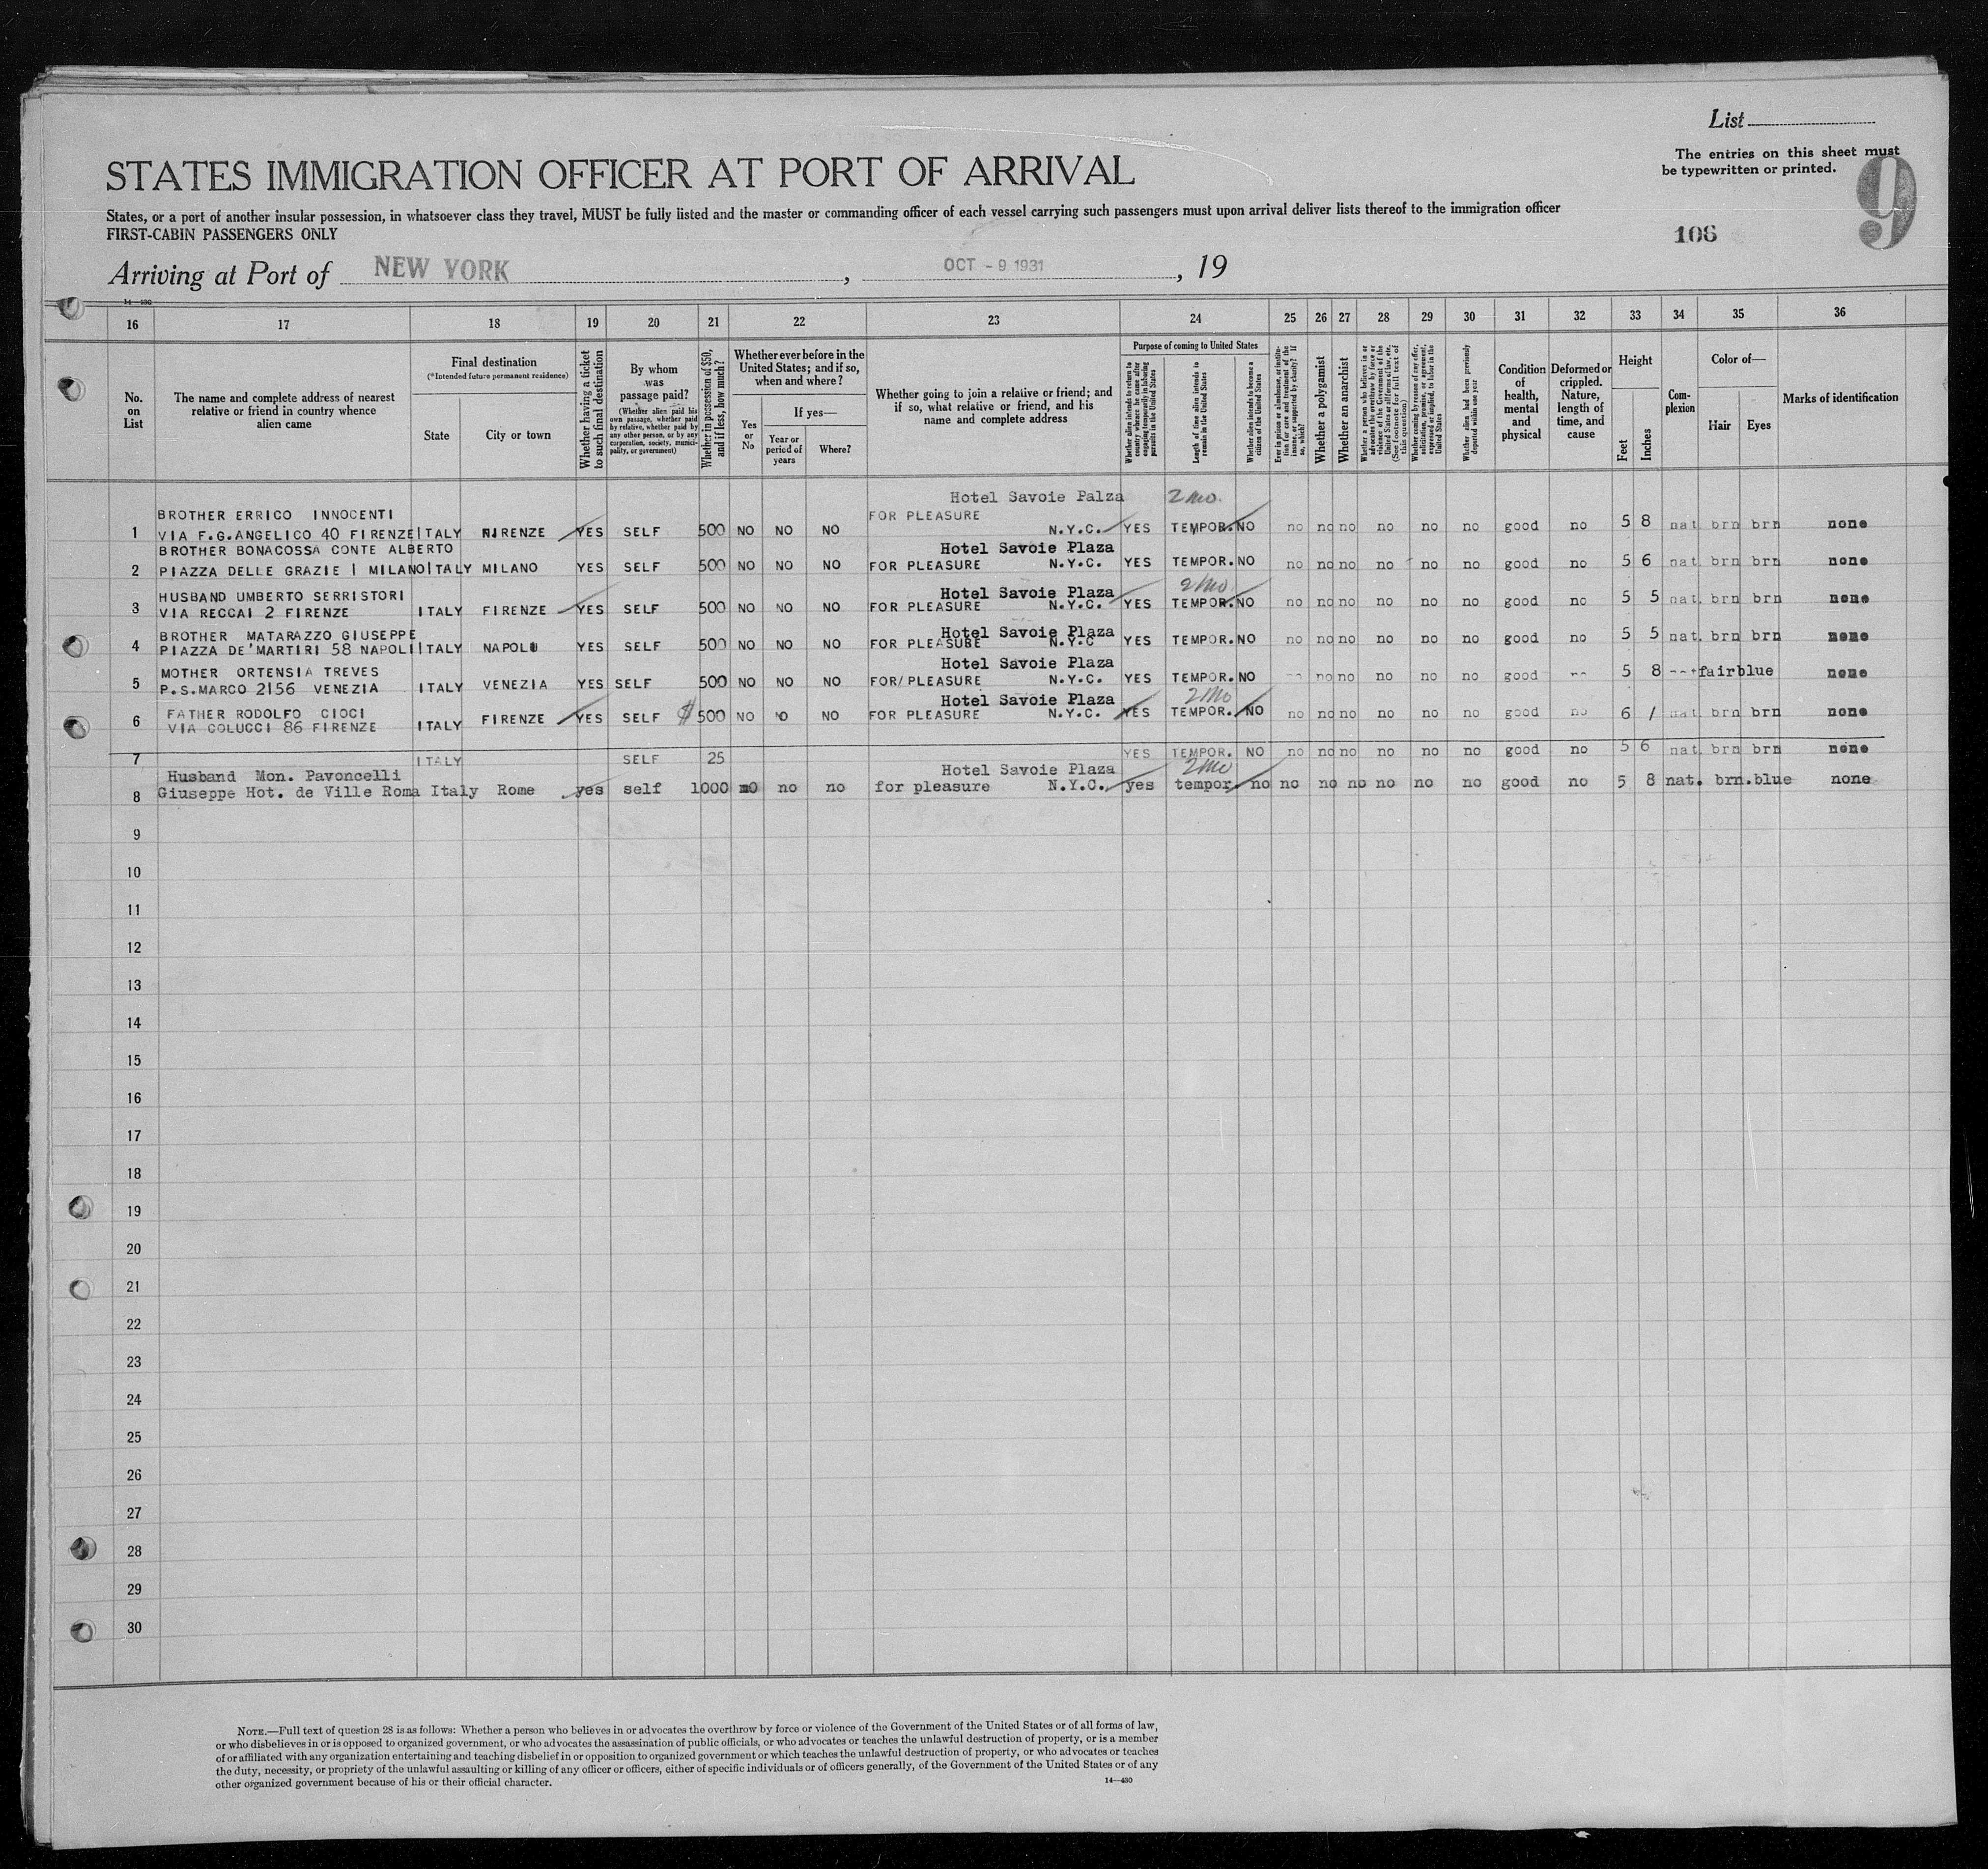 List
The entries on this sheet must
be typewritten or printed.
9
STATES IMMIGRATION OFFICER AT PORT OF ARRIVAL
States, or a port of another insular possession, in whatsoever class they travel, MUST be fully listed and the master or commanding officer of each vessel carrying such passengers must upon arrival deliver lists thereof to the immigration officer
FIRST-CABIN PASSENGERS ONLY
106
Arriving at Port of NEW YORK, OCT - 9 1931, 19
14-430
16 17 18 19 20 21 22 23 24 25 26 27 28 29 30 31 32 33 34 35 36
No. on List
The name and complete address of nearest relative or friend in country whence alien came
Final destination
(*Intended future permanent residence)
State
City or town
Whether having a ticket to such final destination
By whom was passage paid?
(Whether alien paid his own passage, whether paid by relative, whether paid by any other person, or by any corporation, society, municipality, or government)
Whether in possession of $50, and if less, how much?
Whether ever before in the United States; and if so, when and where?
Yes or No
If yes—
Year or period of years
Where?
Whether going to join a relative or friend; and if so, what relative or friend, and his name and complete address
Purpose of coming to United States
Whether alien intends to return to country whence he came after engaging temporarily in laboring pursuits in the United States
Length of time alien intends to remain in the United States
Whether alien intends to become a citizen of the United States
Ever in prison or almshouse, or institution for care and treatment of the insane, or supported by charity? If so, which?
Whether a polygamist
Whether an anarchist
Whether a person who believes in or advocates the overthrow by force or violence of the Government of the United States or all forms of law, etc. (See footnote for full text of this question)
Whether coming by reason of any offer, solicitation, promise, or agreement, expressed or implied, to labor in the United States
Whether alien had been previously deported within one year
Condition of health, mental and physical
Deformed or crippled. Nature, length of time, and cause
Height
Feet
Inches
Complexion
Color of—
Hair
Eyes
Marks of identification
Hotel Savoie Palza 2 Mo.
BROTHER ERRICO INNOCENTI FOR PLEASURE
1 VIA F.G.ANGELICO 40 FIRENZE ITALY FIRENZE YES SELF 500 NO NO NO N.Y.C. YES TEMPOR. NO no no no no no no good no 5 8 nat brn brn none
BROTHER BONACOSSA CONTE ALBERTO Hotel Savoie Plaza
2 PIAZZA DELLE GRAZIE I MILANO ITALY MILANO YES SELF 500 NO NO NO FOR PLEASURE N.Y.C. YES TEMPOR. NO no no no no no no good no 5 6 nat brn brn none
HUSBAND UMBERTO SERRISTORI Hotel Savoie Plaza 2 Mo
3 VIA RECCAI 2 FIRENZE ITALY FIRENZE YES SELF 500 NO NO NO FOR PLEASURE N.Y.C. YES TEMPOR. NO no no no no no no good no 5 5 nat. brn brn none
BROTHER MATARAZZO GIUSEPPE Hotel Savoie Plaza
4 PIAZZA DE'MARTIRI 58 NAPOLI ITALY NAPOLI YES SELF 500 NO NO NO FOR PLEASURE N.Y.C YES TEMPOR. NO no no no no no no good no 5 5 nat. brn brn none
MOTHER ORTENSIA TREVES Hotel Savoie Plaza
5 P.S.MARCO 2156 VENEZIA ITALY VENEZIA YES SELF 500 NO NO NO FOR/PLEASURE N.Y.C. YES TEMPOR. NO no no no no no good 5 8 fair blue none
FATHER RODOLFO CIOCI Hotel Savoie Plaza 2 Mo
6 VIA COLUCCI 86 FIRENZE ITALY FIRENZE YES SELF $ 500 NO NO NO FOR PLEASURE N.Y.C. YES TEMPOR. NO no no no no no no good no 6 1 nat brn brn none
7 ITALY SELF 25 YES TEMPOR. NO no no no no no no good no 5 6 nat brn brn none
Husband Mon. Pavoncelli Hotel Savoie Plaza 2 Mo
8 Giuseppe Hot. de Ville Roma Italy Rome yes self 1000 no no no for pleasure N.Y.C. yes tempor. no no no no no no no good no 5 8 nat. brn. blue none
9
10
11
12
13
14
15
16
17
18
19
20
21
22
23
24
25
26
27
28
29
30
NOTE.—Full text of question 28 is as follows: Whether a person who believes in or advocates the overthrow by force or violence of the Government of the United States or of all forms of law,
or who disbelieves in or is opposed to organized government, or who advocates the assassination of public officials, or who advocates or teaches the unlawful destruction of property, or is a member
of or affiliated with any organization entertaining and teaching disbelief in or opposition to organized government or which teaches the unlawful destruction of property, or who advocates or teaches
the duty, necessity, or propriety of the unlawful assaulting or killing of any officer or officers, either of specific individuals or of officers generally, of the Government of the United States or of any
other organized government because of his or their official character.
14—430